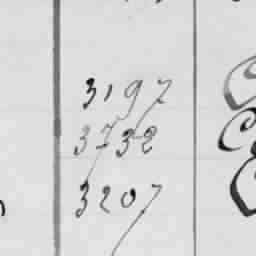 3197
3732
3207